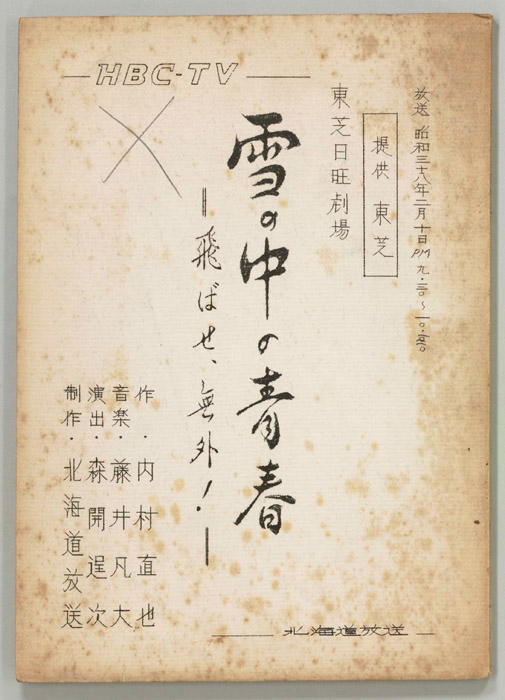 HBC-TV
放送 昭和三十八年二月十日PM九・三〇~一〇・三〇
提供 東芝
東芝日旺劇場
雪の中の青春
ー飛ばせ、無外!ー
作・内村直也
音楽・藤井凡大
演出・森開逞次
制作・北海道放送
北海道放送